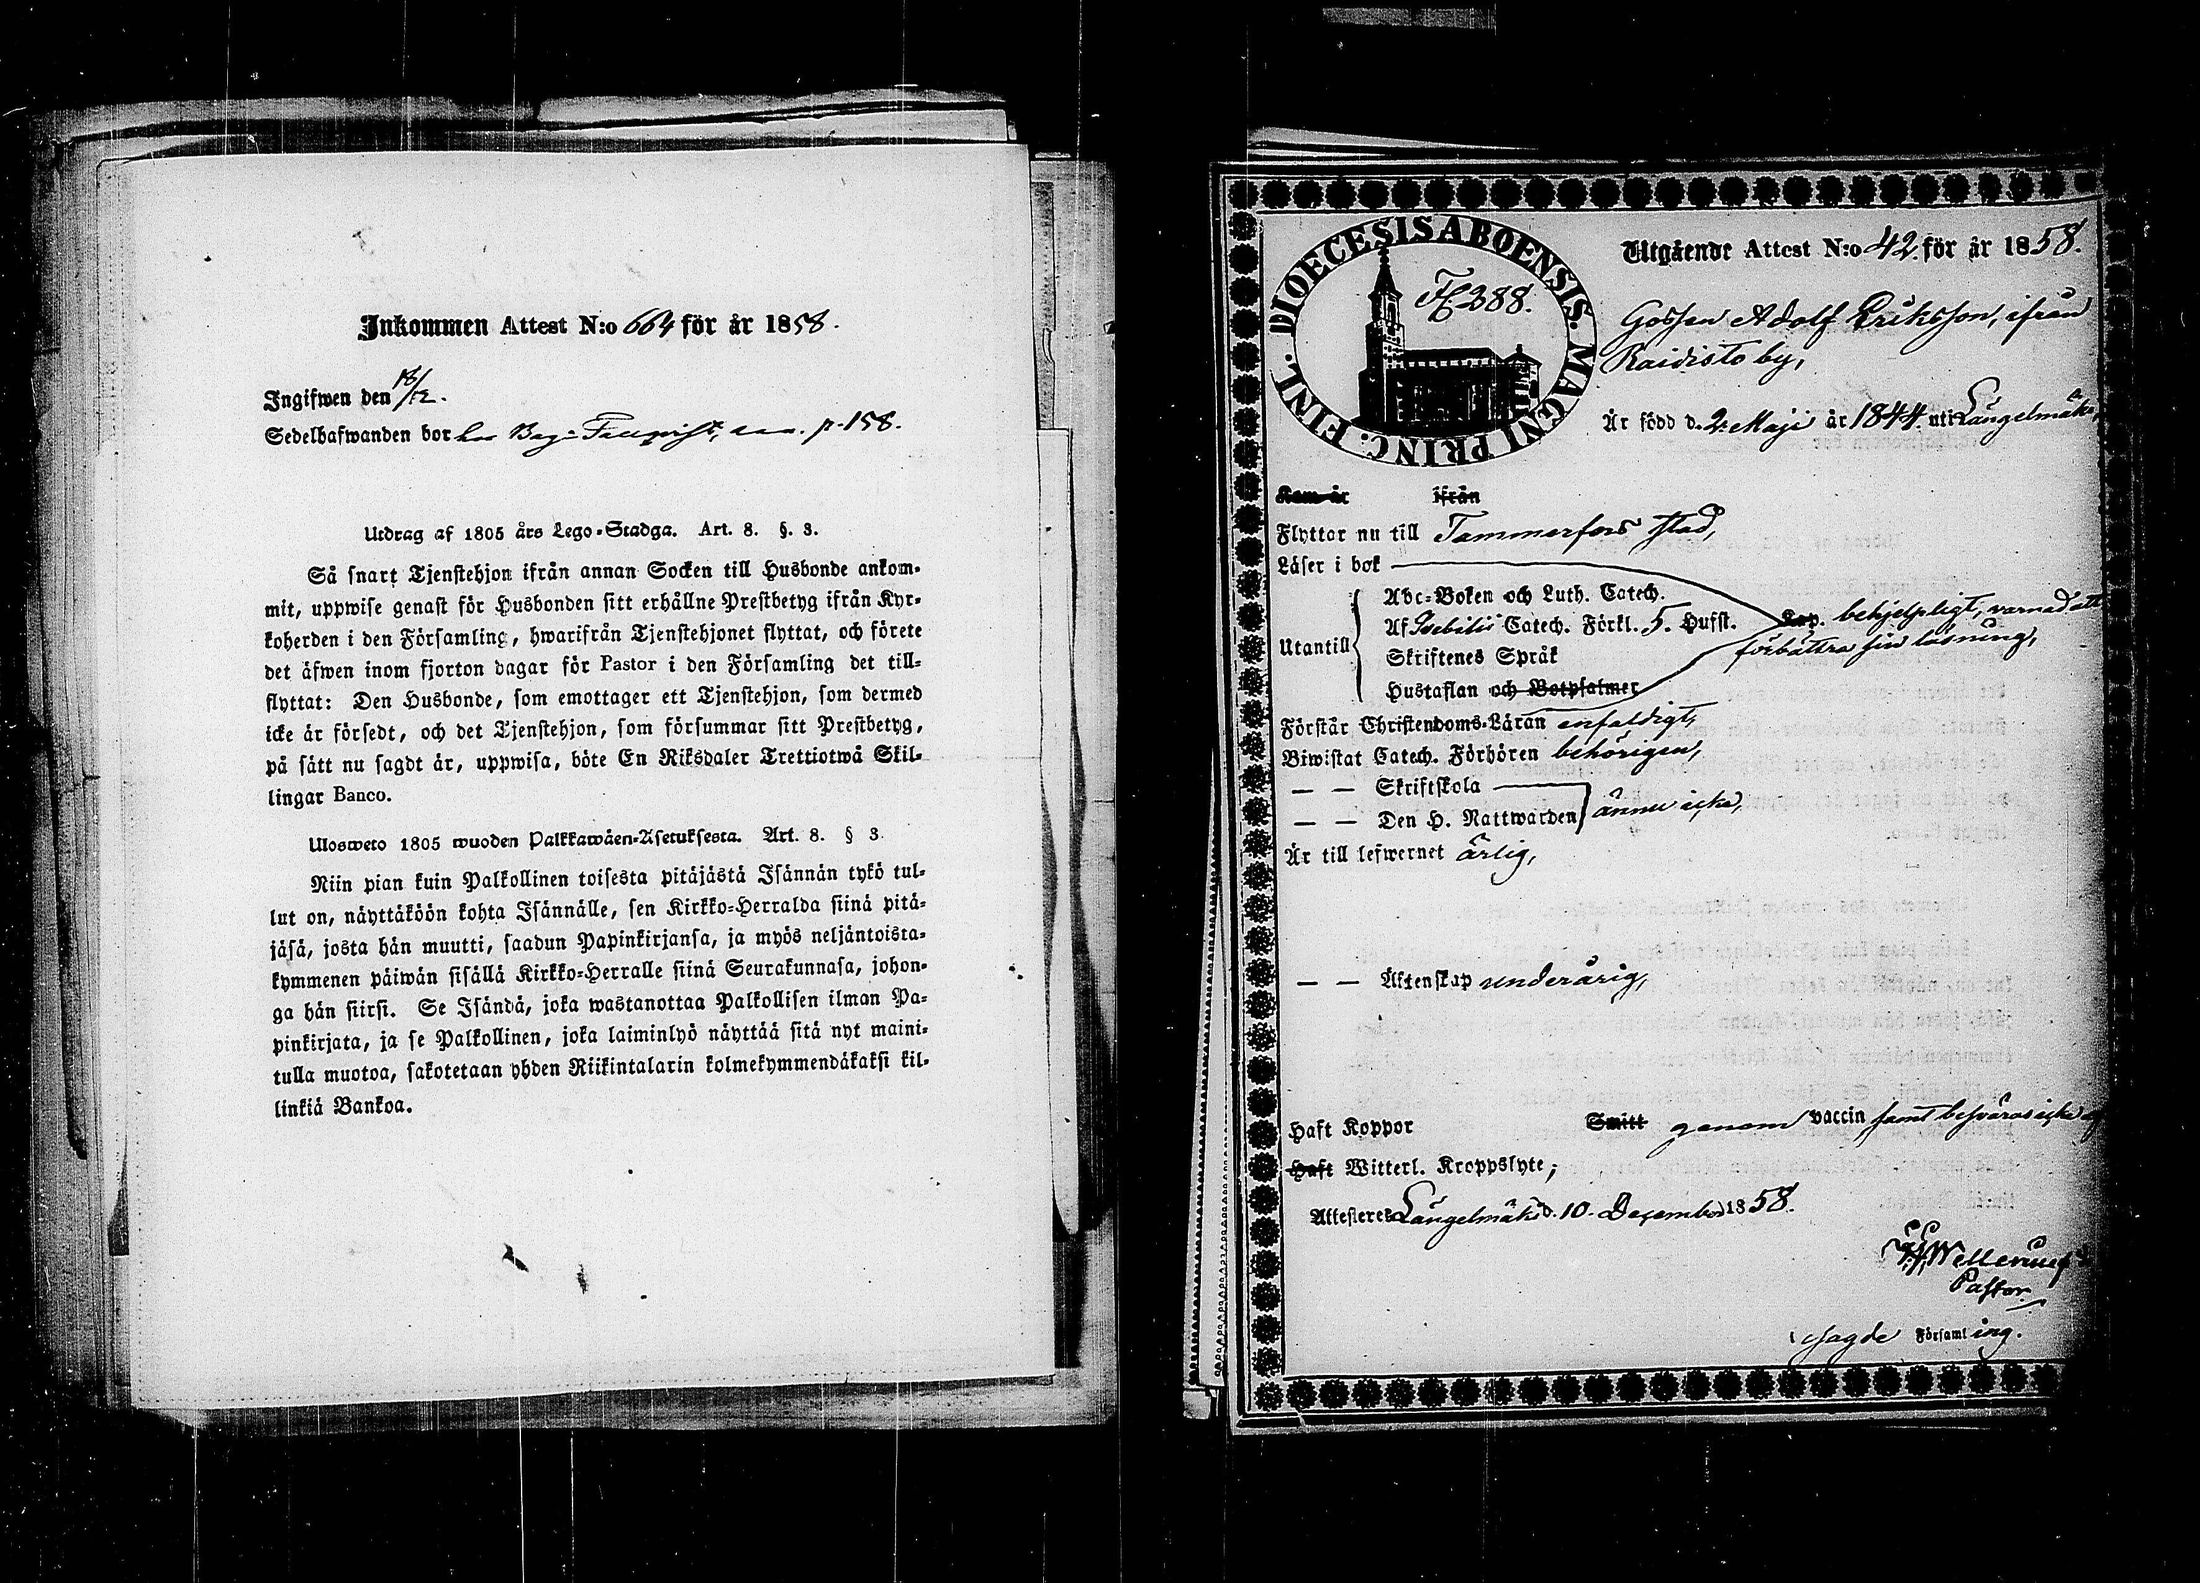 Inkommen Attest N:o 664 för år 1858.
Ingifwen den 18/12.
Sedelhafwanden bor hos p. 158.
Utdrag af 1805 års Lego-Stadga. Art. 8. §. 3.
Så snart Tjenstehjon ifrån annan Socken till Husbonde ankom-
mit, uppwise genast för Husbonden sitt erhållne Prestbetyg ifrån Kyr-
koherden i den Församling, hwarifrån Tjenstehjonet flyttat, och förete
det äfwen inom fjorton dagar för Pastor i den Församling det till-
flyttat: Den Husbonde, som emottager ett Tjenstehjon, som dermed
icke är försedt, och det Tjenstehjon, som försummar sitt Prestbetyg,
på sätt nu sagdt är, uppwisa, böte En Riksdaler Trettiotwå Skil-
lingar Banco.
Ulosweto 1805 wuoden Palkkawäen-Asetuksesta. Art. 8. § 3.
Niin pian kuin Palkollinen toisesta pitäjästä Isännän tykö tul-
lut on, näyttäköön kohta Isännälle, sen Kirkko-Herralda siinä pitä-
jäsä, josta hän muutti, saadun Papinkirjansa, ja myös neljäntoista-
kymmenen päiwän sisällä Kirkko-Herralle siinä Seurakunnasa, johon-
ga hän siirsi. Se Isändä, joka wastanottaa Palkollisen ilman Pa-
pinkirjata, ja se Palkollinen, joka laiminlyö näyttää sitä nyt maini-
tulla muotoa, sakotetaan yhden Riikintalarin kolmekymmendäkaksi kil-
linkiä Bankoa.
DIOECESIS ABOENSIS. MAGNI PRINC. FINL.
288.
Utgående Attest N:o 42 för år 1858.
Gossen Adolf Eriksson, ifrån
Raidisto by,
Är född d. 2 Maji år 1844 uti Längelmäki,
Kom år ifrån
Flyttar nu till Tammerfors stad,
Läser i bok
Utantill
Abc-Boken och Luth. Catech.
Af Svebilii Catech. Förkl. 5. Hufst.
Skriftenes Språk
Hustaflan och Botpsalmer
behjelpligt, varnad att
förbättra sin läsning,
Förstår Christendoms-Läran enfaldigt,
Biwistat Catech. Förhören behörigen,
— — Skriftskola
— — Den H. Nattwarden
ännu icke,
Är till lefwernet ärlig,
— — Äktenskap underårig,
Haft Koppor Smitt genom vaccin samt besväras icke af
Haft Witterl. Kroppslyte;
Attesteres Längelmäki d. 10 December 1858.
Pastor
i sagde Församling.